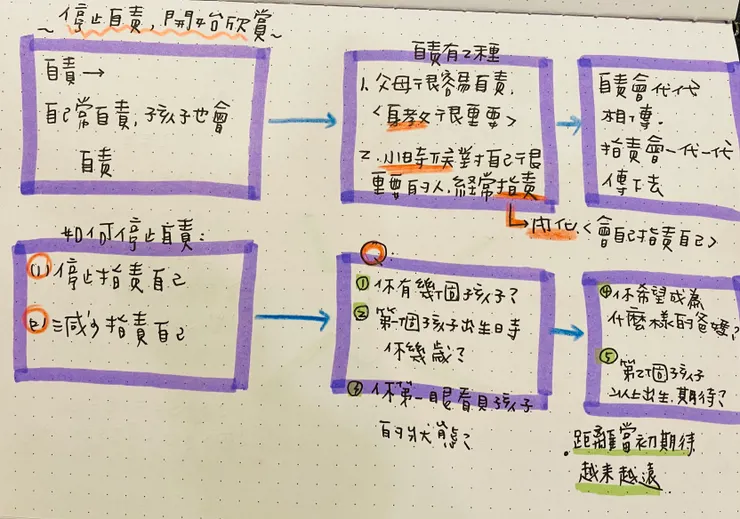 ~停止自責,開始欣賞~
自責→
自己常自責,孩子也會
自責
自責有2種
1. 父母很容易自責.
<身教很重要>
2. 小時候對自己很
重要的人.經常指責
↳內化.<會自己指責自己>
自責會代代
相傳.
指責會一代一代
傳下去
如何停止自責:
(1) 停止指責自己
(2) 減少指責自己
Q.
① 你有幾個孩子?
② 第一個孩子出生時
你幾歲?
③ 你第一眼看見孩子
的狀態?
④ 你希望成為
什麼樣的爸媽?
⑤ 第2個孩子
以上出生.期待?
.距離當初期待
越來越遠